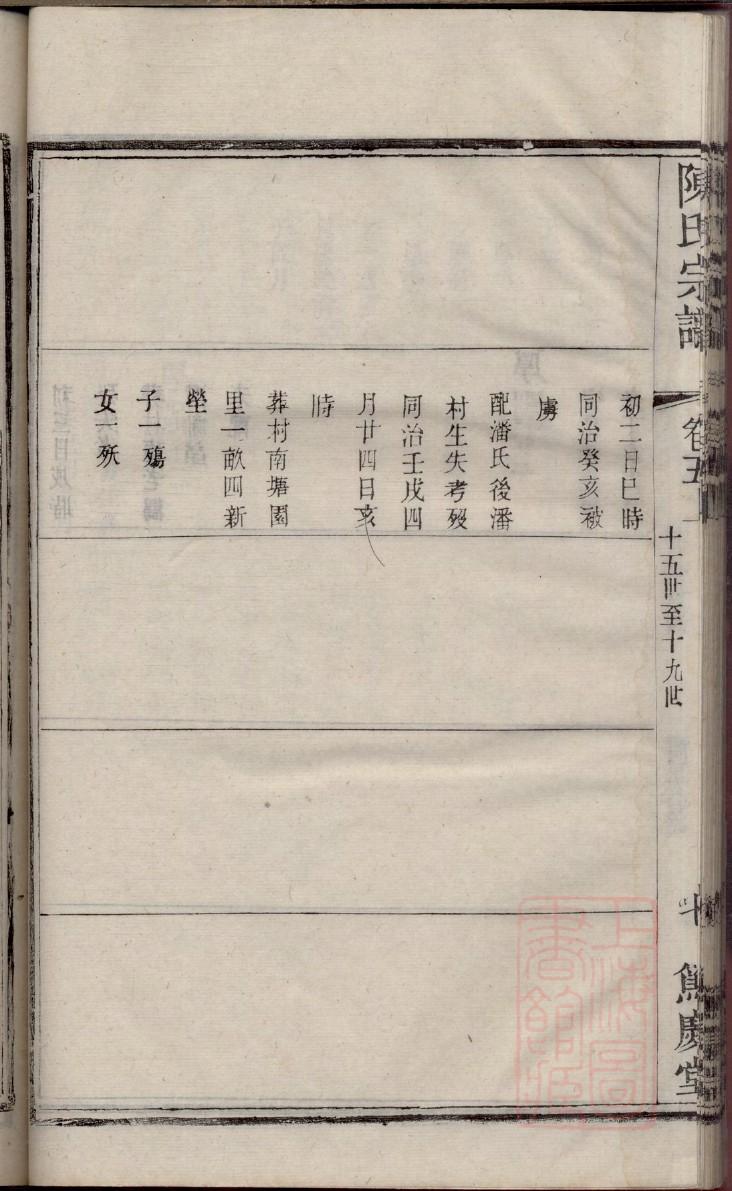 陳氏宗譜
卷五
十五世至十九世
初二日巳時
同治癸亥被
虜
配潘氏後潘
村生失考歿
同治壬戌四
月廿四日亥
時
葬村南塘園
里一畝四新
塋
子一殤
女一殀
慶堂
上海圖書館藏